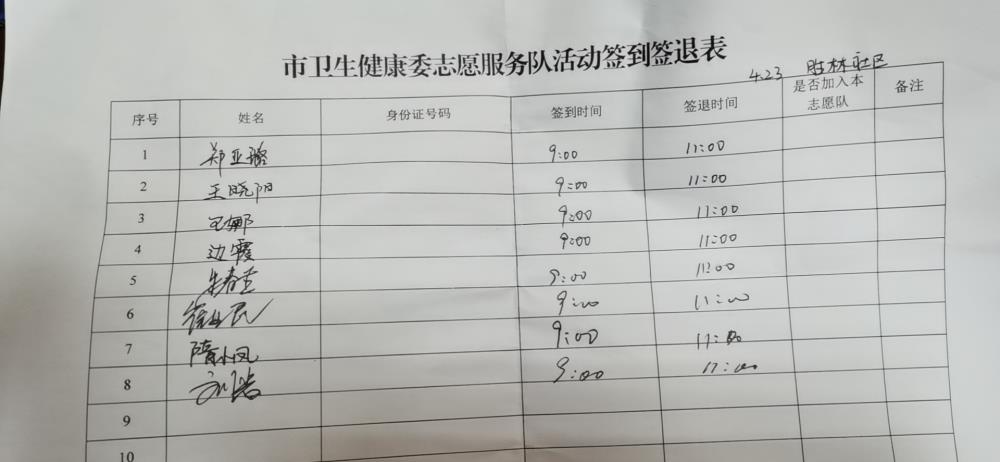 市卫生健康委志愿服务队活动签到签退表
4.23 胜林社区
序号 姓名 身份证号码 签到时间 签退时间 是否加入本志愿队 备注
1 郑亚璐 9:00 11:00
2 王晓阳 9:00 11:00
3 王娜 9:00 11:00
4 边霞 9:00 11:00
5 朱春兰 9:00 11:00
6 9:00 11:00
7 隋小凤 9:00 11:00
8 9:00 11:00
9
10